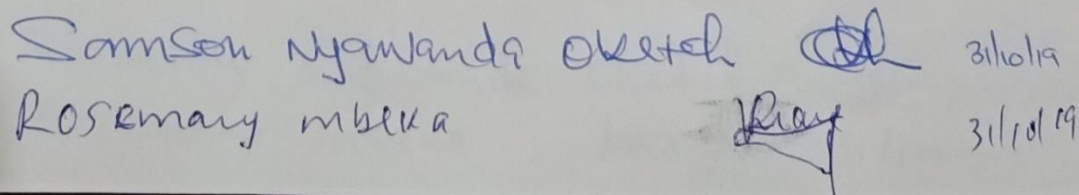 Samson Nyawanda Oketch 31/10/19
Rosemary mbeka 31/10/19